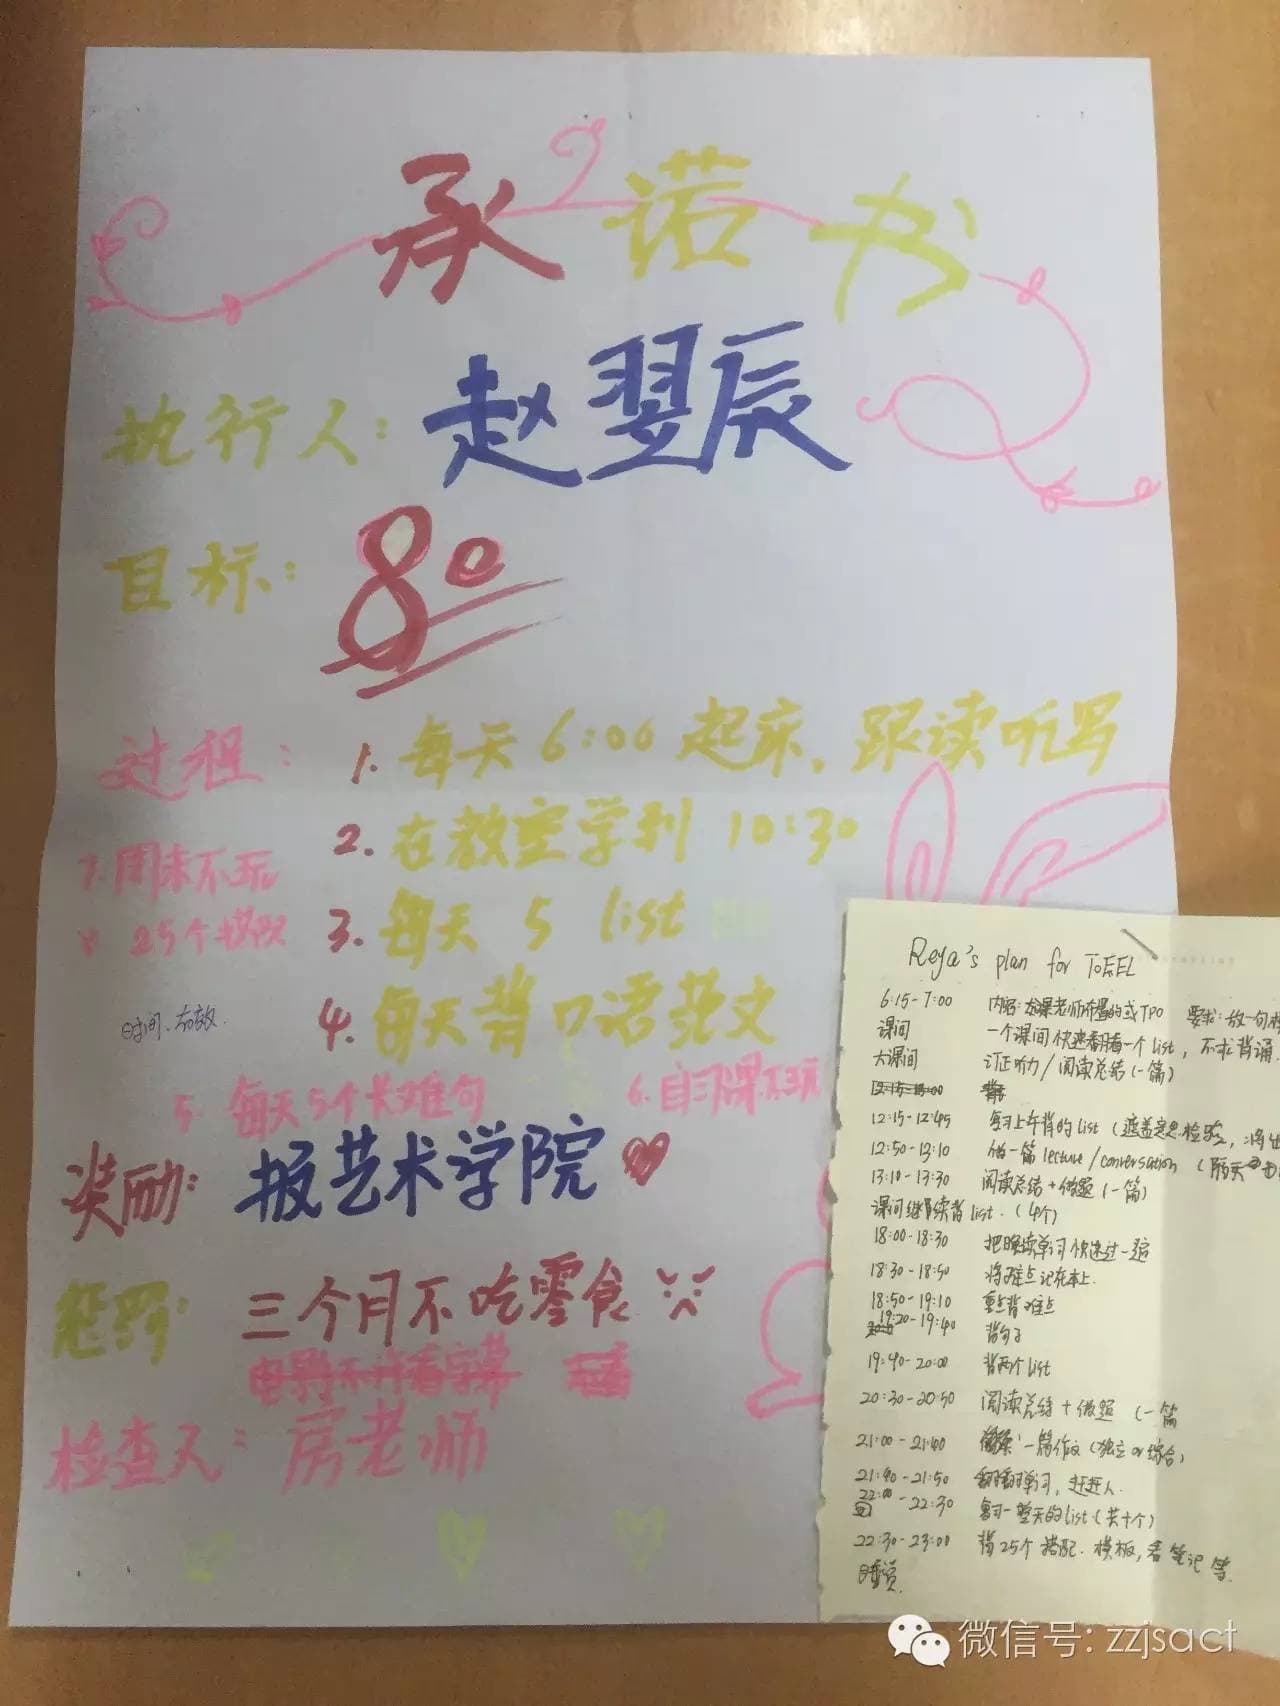 承诺书
执行人：赵翌辰
目标：80
过程：1. 每天6:00起床，跟读听写
2. 在教室学到 10:30
3. 每天 5 list
4. 每天背口语范文
5. 每天5个长难句
6. 自习课不玩
7. 周末不玩
25个搭配
时间、有效.
奖励：报艺术学院
惩罚：三个月不吃零食
检查人：房老师
Reya's plan for TOEFL
6:15-7:00 内容：龙课老师布置的或TPO 要求：放一句
课间 一个课间快速翻看一个list，不求背诵.
大课间 订正听力/阅读总结(一篇)
12:15-12:45 复习上午背的list
12:50-13:10 做一篇lecture/conversation
13:10-13:30 阅读总结+做题(一篇)
课间继续背list.(4个)
18:00-18:30 把晚读单词快速过一遍
18:30-18:50 将难点记在本上.
18:50-19:10 重点背难点
19:20-19:40 背句子
19:40-20:00 背两个list
20:30-20:50 阅读总结+做题(一篇
21:00-21:40 一篇作文(独立or综合)
21:40-21:50 翻翻单词，赶赶人.
22:00-22:30 复习一整天的list(共十个)
22:30-23:00 背25个搭配.模板，看笔记等.
睡觉.
微信号: zzjsact